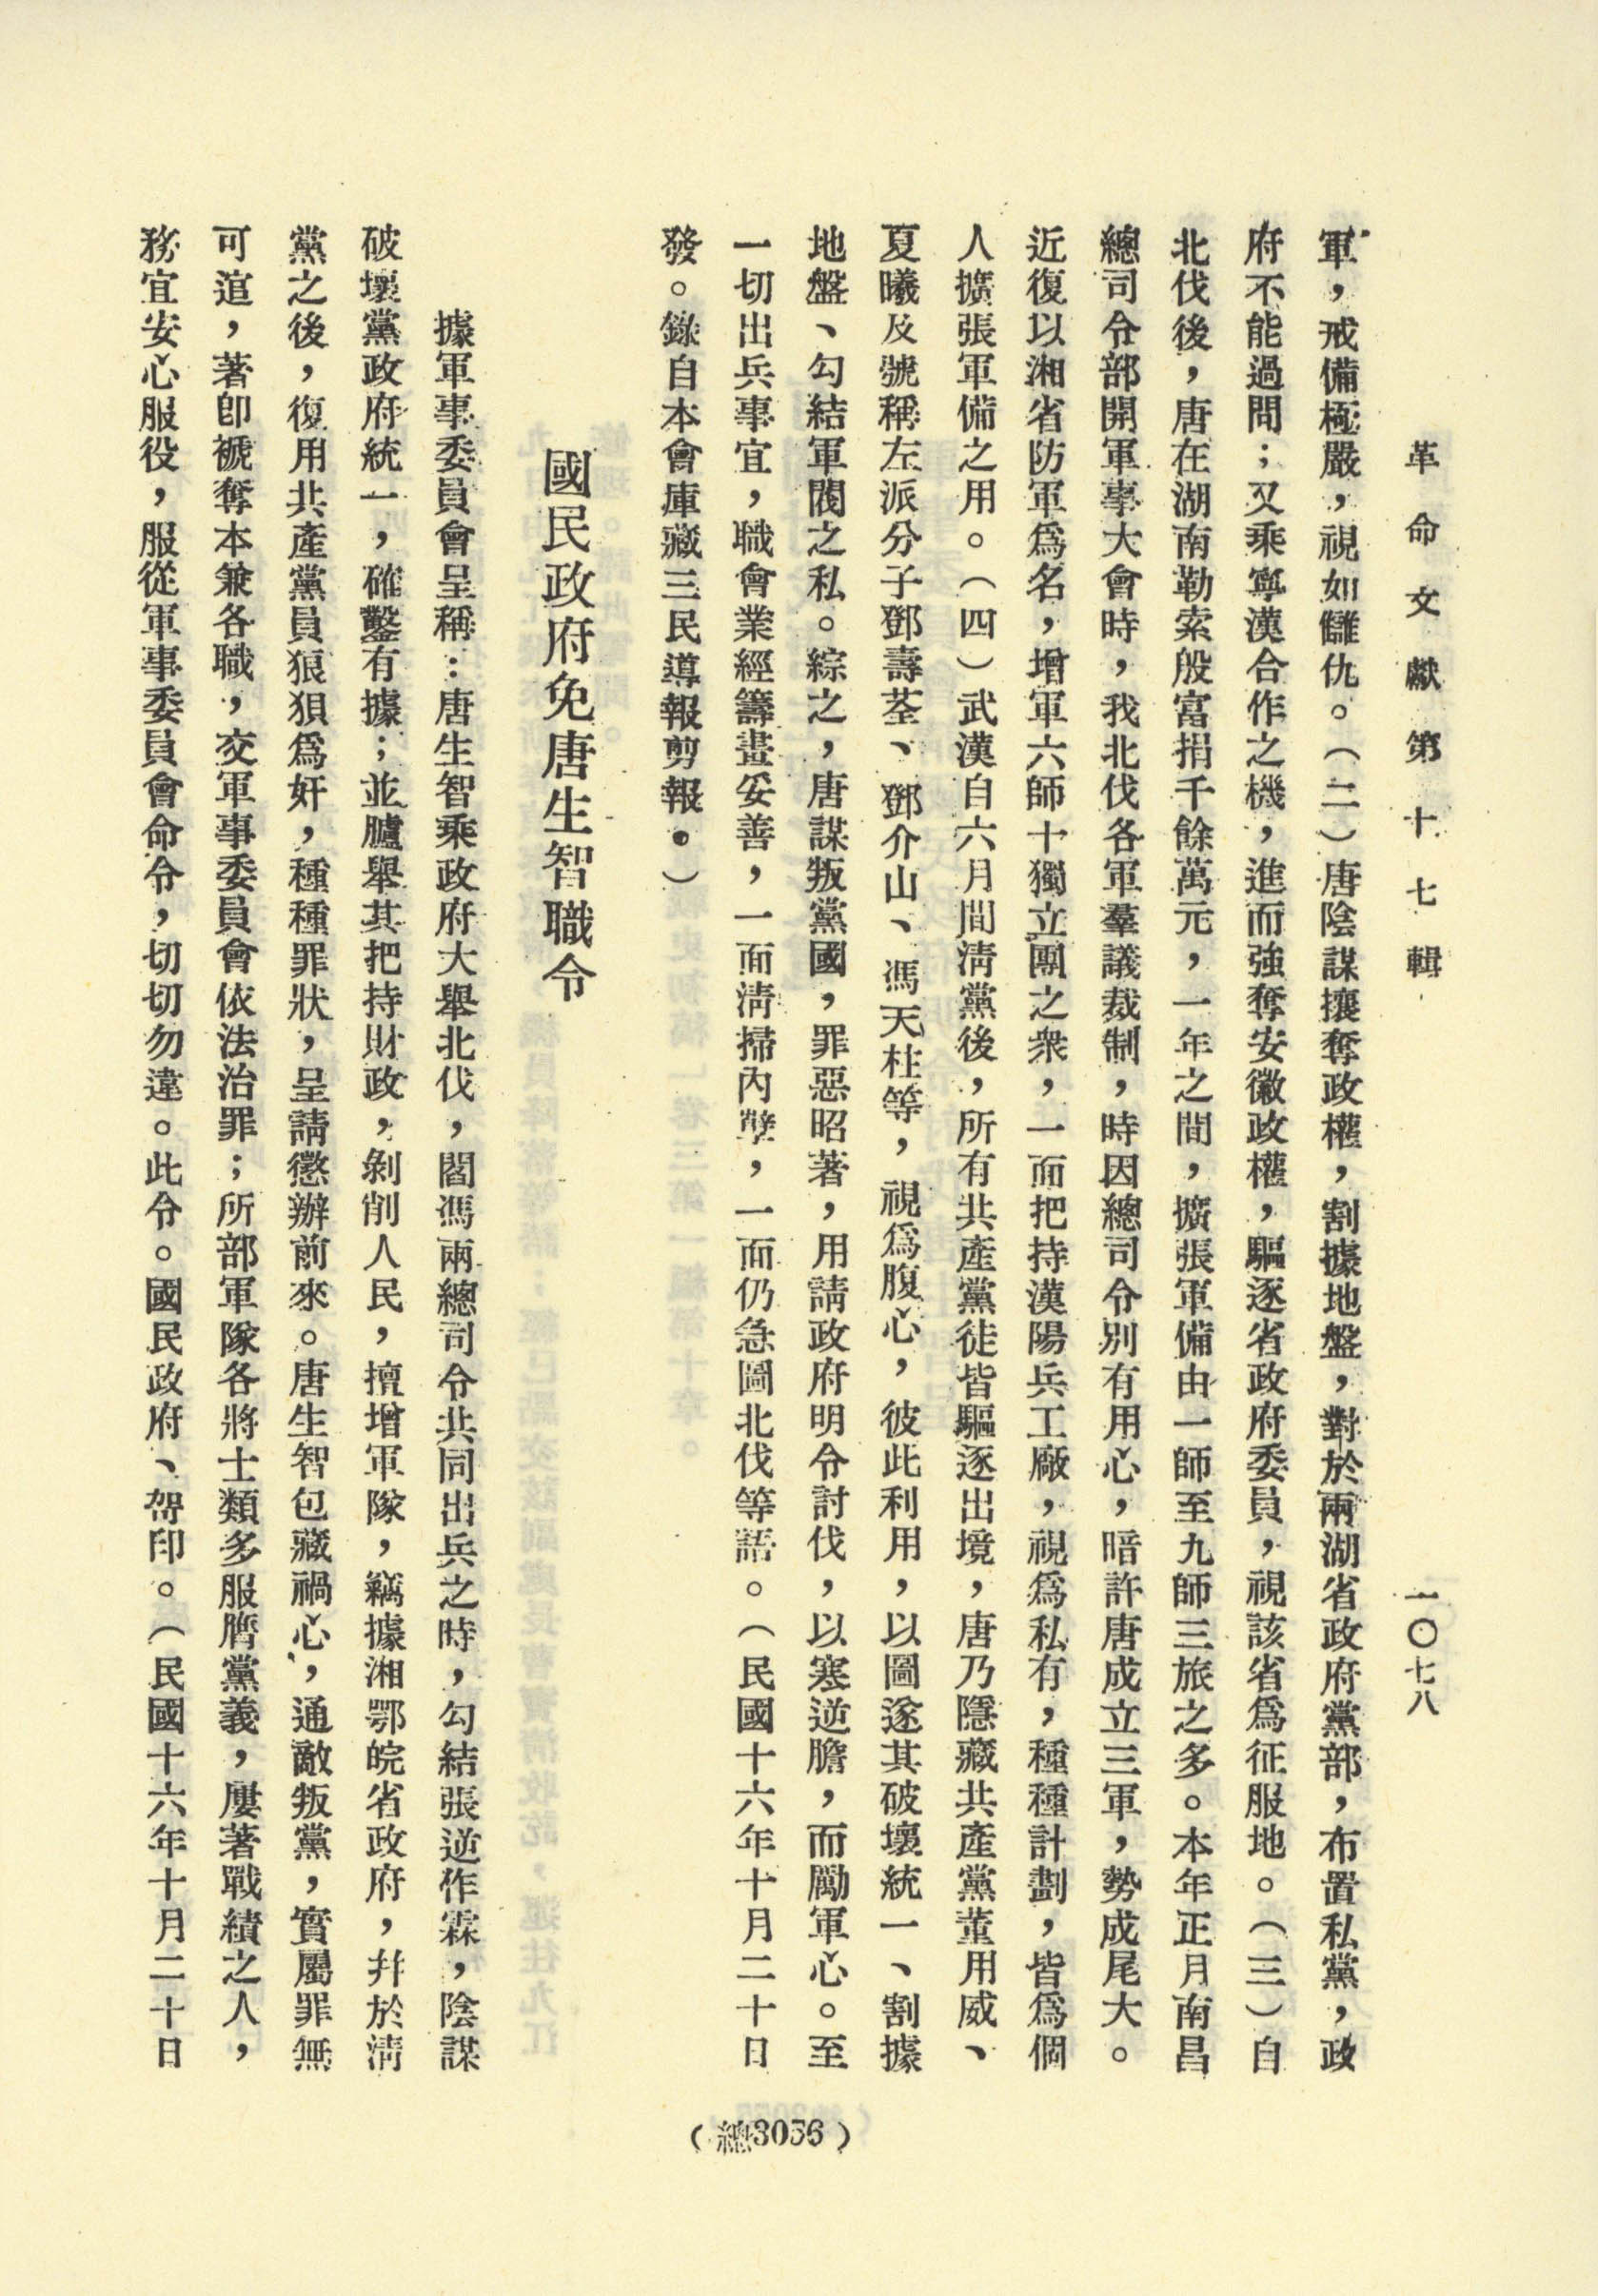 革命文獻第十七輯
一〇七八
軍，戒備極嚴，視如讎仇。（二）唐陰謀攘奪政權，割據地盤，對於兩湖省政府黨部，布置私黨，政
府不能過問；又乘寧漢合作之機，進而強奪安徽政權，驅逐省政府委員，視該省爲征服地。（三）自
北伐後，唐在湖南勒索殷富捐千餘萬元，一年之間，擴張軍備由一師至九師三旅之多。本年正月南昌
總司令部開軍事大會時，我北伐各軍羣議裁制，時因總司令別有用心，暗許唐成立三軍，勢成尾大。
近復以湘省防軍爲名，增軍六師十獨立團之衆，一面把持漢陽兵工廠，視爲私有，種種計劃，皆爲個
人擴張軍備之用。（四）武漢自六月間淸黨後，所有共產黨徒皆驅逐出境，唐乃隱藏共產黨董用威、
夏曦及號稱左派分子鄧壽荃、鄧介山、馮天柱等，視爲腹心，彼此利用，以圖遂其破壞統一、割據
地盤、勾結軍閥之私。綜之，唐謀叛黨國，罪惡昭著，用請政府明令討伐，以寒逆膽，而勵軍心。至
一切出兵事宜，職會業經籌畫妥善，一面淸掃內孽，一面仍急圖北伐等語。（民國十六年十月二十日
發。錄自本會庫藏三民導報剪報。）
國民政府免唐生智職令
據軍事委員會呈稱：唐生智乘政府大舉北伐，閻馮兩總司令共同出兵之時，勾結張逆作霖，陰謀
破壞黨政府統一，確鑿有據；並臚舉其把持財政，剝削人民，擅增軍隊，竊據湘鄂皖省政府，幷於淸
黨之後，復用共產黨員狼狽爲奸，種種罪狀，呈請懲辦前來。唐生智包藏禍心，通敵叛黨，實屬罪無
可逭，著卽褫奪本兼各職，交軍事委員會依法治罪；所部軍隊各將士類多服膺黨義，屢著戰績之人，
務宜安心服役，服從軍事委員會命令，切切勿違。此令。國民政府、砮印。（民國十六年十月二十日
（總3056）